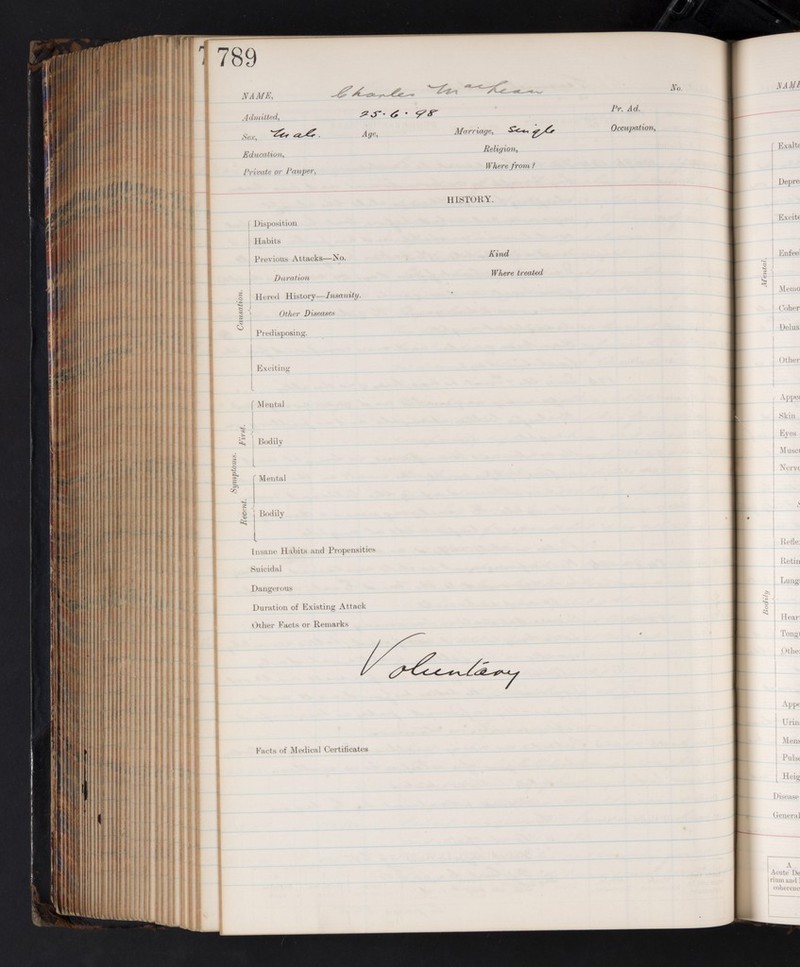 789
NAME, Charles MacLean No.
Admitted, 25·6·98 Pr. Ad.
Sex, Male. Age, Marriage, Single Occupation,
Education, Religion,
Private or Pauper, Where from?
HISTORY.
Disposition
Habits
Previous Attacks—No. Kind
Duration Where treated
Hered History—Insanity.
Other Diseases
Causation.
Predisposing.
Exciting
Mental
First.
Bodily
Symptoms.
Mental
Recent.
Bodily
Insane Habits and Propensities
Suicidal
Dangerous
Duration of Existing Attack
Other Facts or Remarks
Voluntary
Facts of Medical Certificates
NAME
Exalt
Depre
Excite
Enfee
Mental.
Memo
Coher
Delus
Other
Appe
Skin
Eyes
Musc
Nerv
Refle
Retin
Lung
Bodily
Hear
Tong
Othe
Appe
Urin
Mens
Puls
Heig
Disease
General
A
Acute De
rium and
coherenc